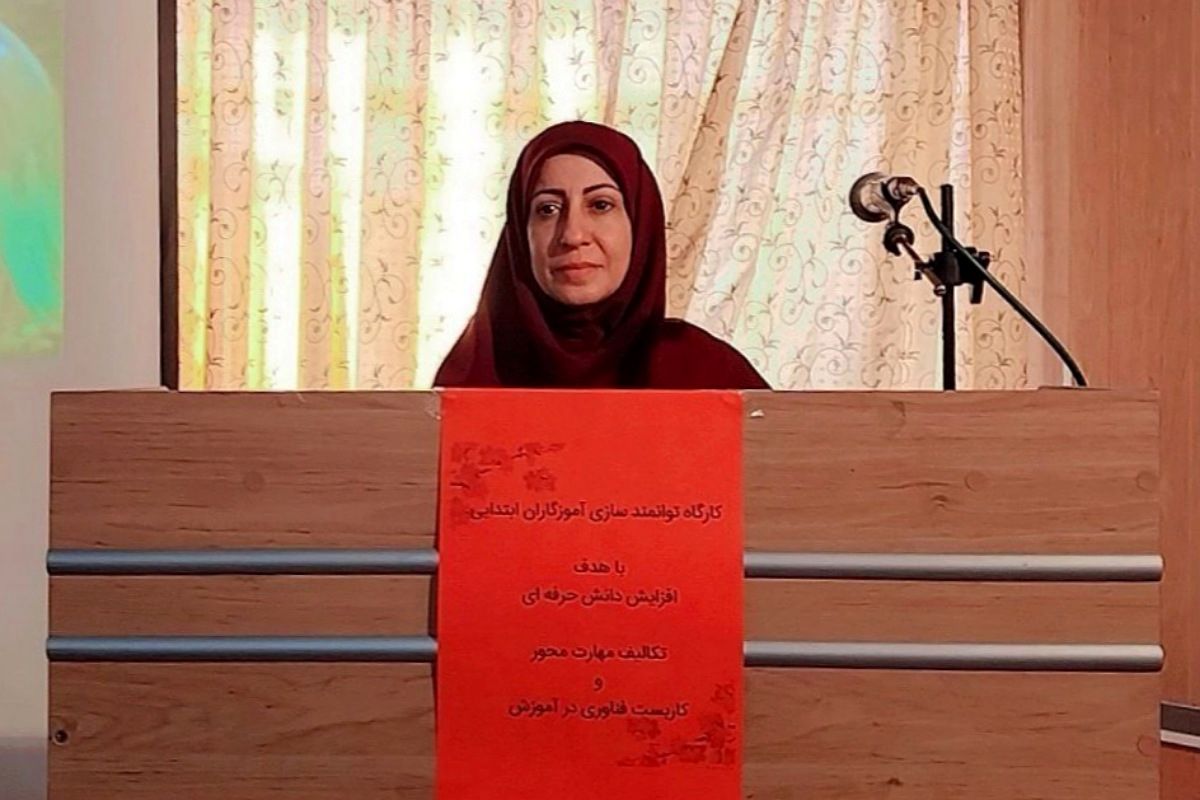 کارگاه توانمند سازی آموزگاران ابتدایی
با هدف
افزایش دانش حرفه ای
تکالیف مهارت محور
و
کاربست فناوری در آموزش